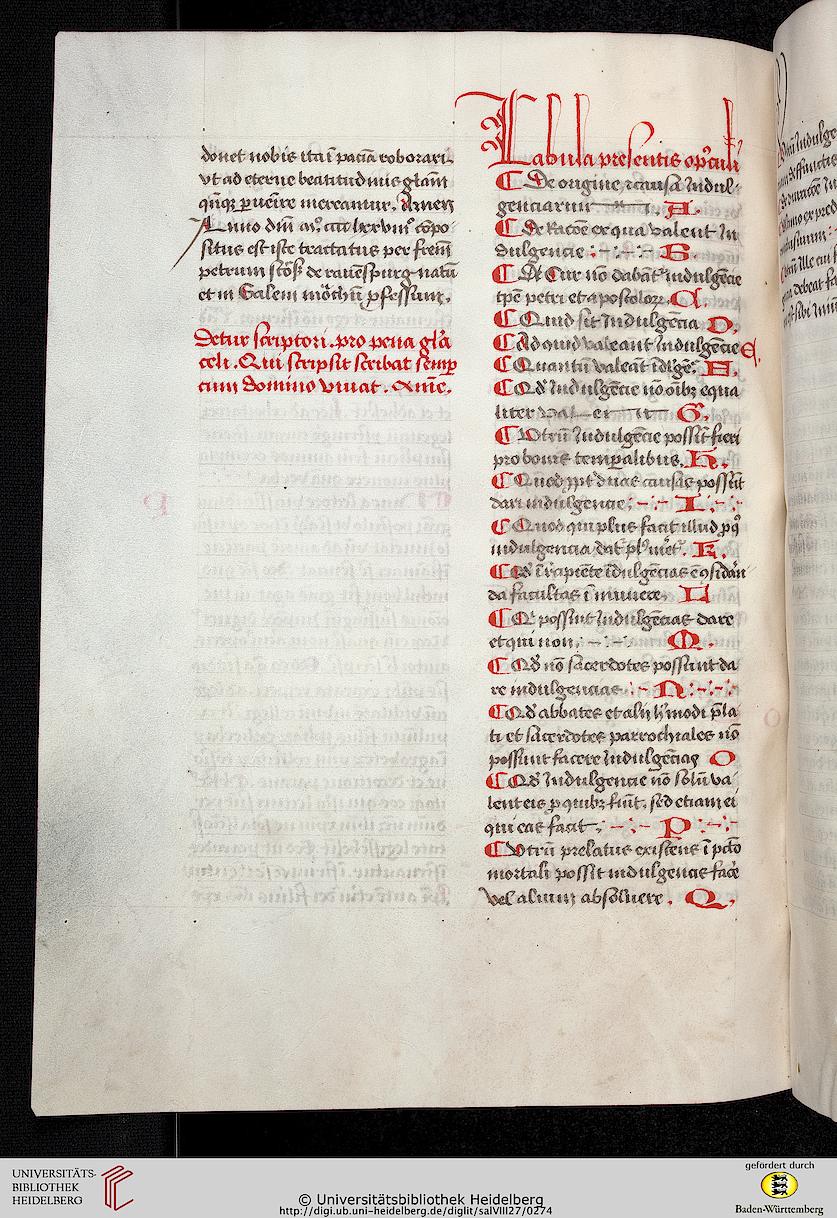 donet nobis ita ī pacīa roborari
vt ad eterne beatitudinis glām
qūqꝫ ꝑuēire mereamur. Amen
Anno dm̄ mᵒ. ccc lxxviijᵒ cōpo
situs est iste tractatus per frēm
petrum de rauēspurg natū
et in Salem mōchū ꝓfessum.
Detur scriptori . pro pena glīa
celi . Qui scripsit scribat semꝑ
cum domino viuat . Amē.
Tabula presentis opꝰculi
De origine ⁊ causa Indul-
genciarum . A .
De Racōe ex qua valent In
dulgencie . B .
Cur nō dabāt̄ indulgēcie
tp̄e petri et apostoloꝝ . C .
Quid sit Indulgēcia . D .
Ad quid valeant Indulgēcie E .
Quantū valeāt īdlgē . F .
Qd̓ Indulgēcie nō oībꝫ equa
liter valent G .
Vtrū Indulgēcie possūt fieri
pro bonis temꝑalibus . H .
Quod ꝓpt̓ duas causas possūt
dari indulgencie . I .
Quod qui plus facit illud ꝓ qͦ
indulgencia dat̄ plꝰ . K .
Qd̓ ī rꝰcipiēte īdulgēcias ē ꝯsidān
da facultas L
Qͥ possūt Indulgēcias dare
et qui non . M .
Qd̓ nō sacerdotes possunt da
re indulgencias . N .
Qd̓ abbates et alij hꝰmodi p̄la
ti et sacerdotes parrochiales nō
possunt facere Indulgēcias O
Qd̓ Indulgencie nō solū va-
lent eis ꝓ quibꝫ fiūt , sed etiam ei
qui eas facit . P .
Vtrū prelatus existens ī pctō
mortali possit indulgencias facē
vel alium absoluere . Q .
UNIVERSITÄTS-
BIBLIOTHEK
HEIDELBERG
© Universitätsbibliothek Heidelberg
http://digi.ub.uni-heidelberg.de/diglit/salVIII27/0274
gefördert durch
Baden-Württemberg